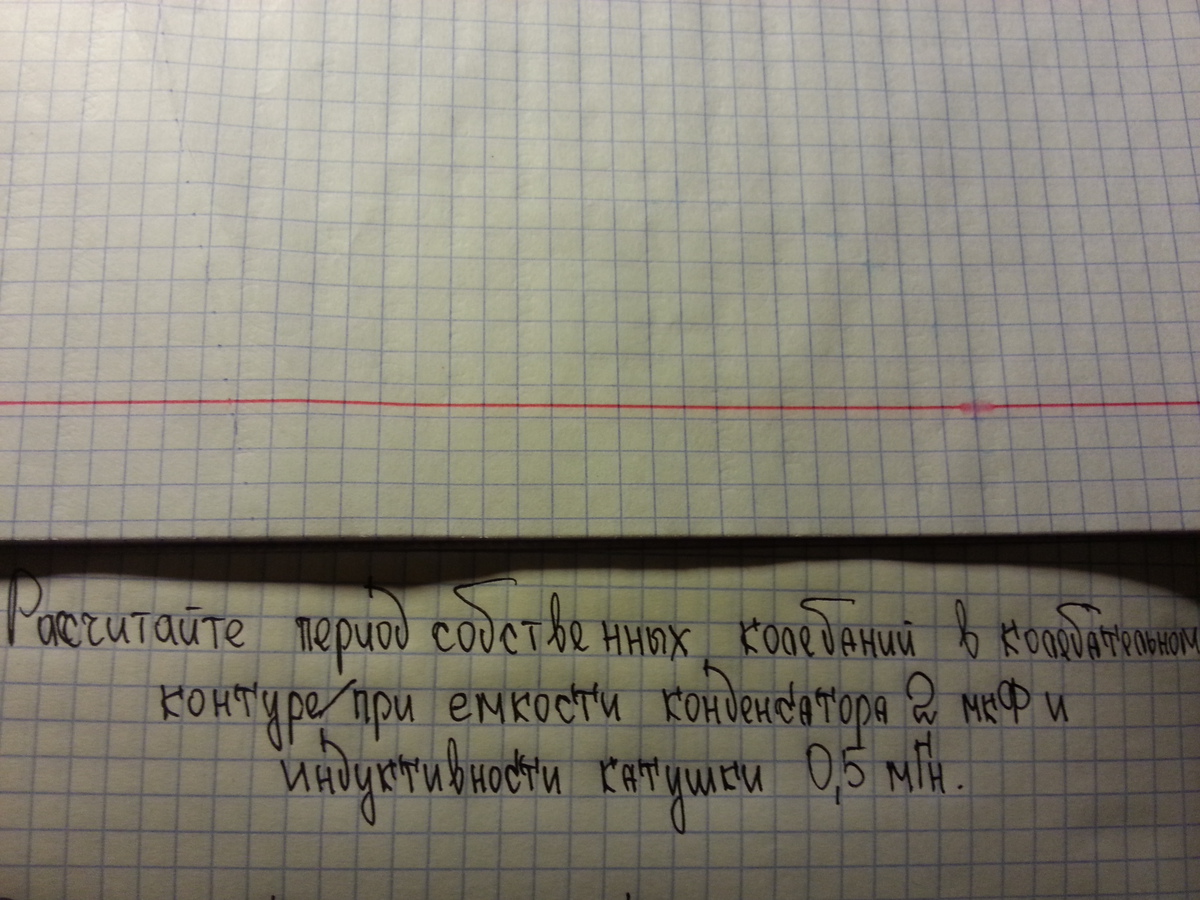 Рассчитайте период собственных колебаний в колебательном
контуре при емкости конденсатора 2 мкФ и
индуктивности катушки 0,5 мГн.